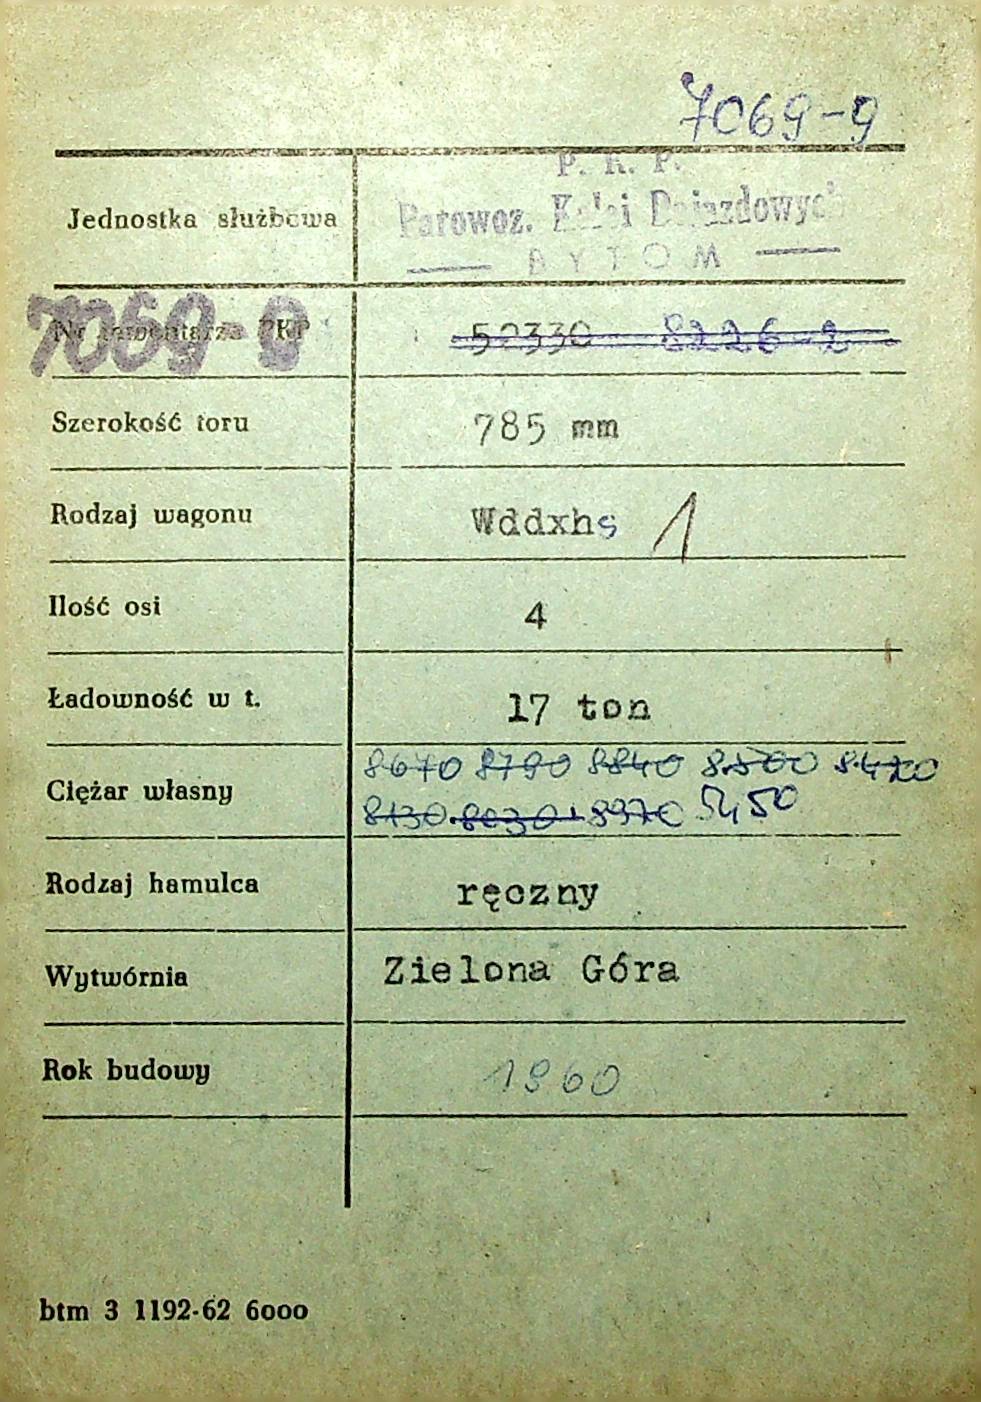 7069-9
P. K. P.
Jednostka służbowa Parowoz. Kolei Dojazdowych
BYTOM
7069-9
Nr inwentarza PKP 52330 8226-2
Szerokość toru 785 mm
Rodzaj wagonu Wddxhs 1
Ilość osi 4
Ładowność w t. 17 ton
8670 8790 8840 8.500 8.420
Ciężar własny 8130 8030 8970
Rodzaj hamulca ręczny
Wytwórnia Zielona Góra
Rok budowy 1960
btm 3 1192-62 6000